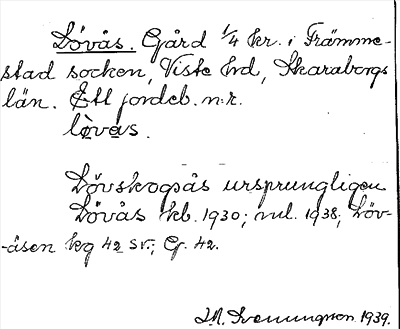 Lövås. Gård 1/4 kr. i Främme-
stad socken, Viste hd, Skaraborgs
län. Ett jordeb. nr.
lòvås.
Lövskogsås ursprungligen
Lövås kb. 1930; ml. 1938; Löv-
-åsen kg 42 sv.; G. 42.
J. A. Svenungson 1939.